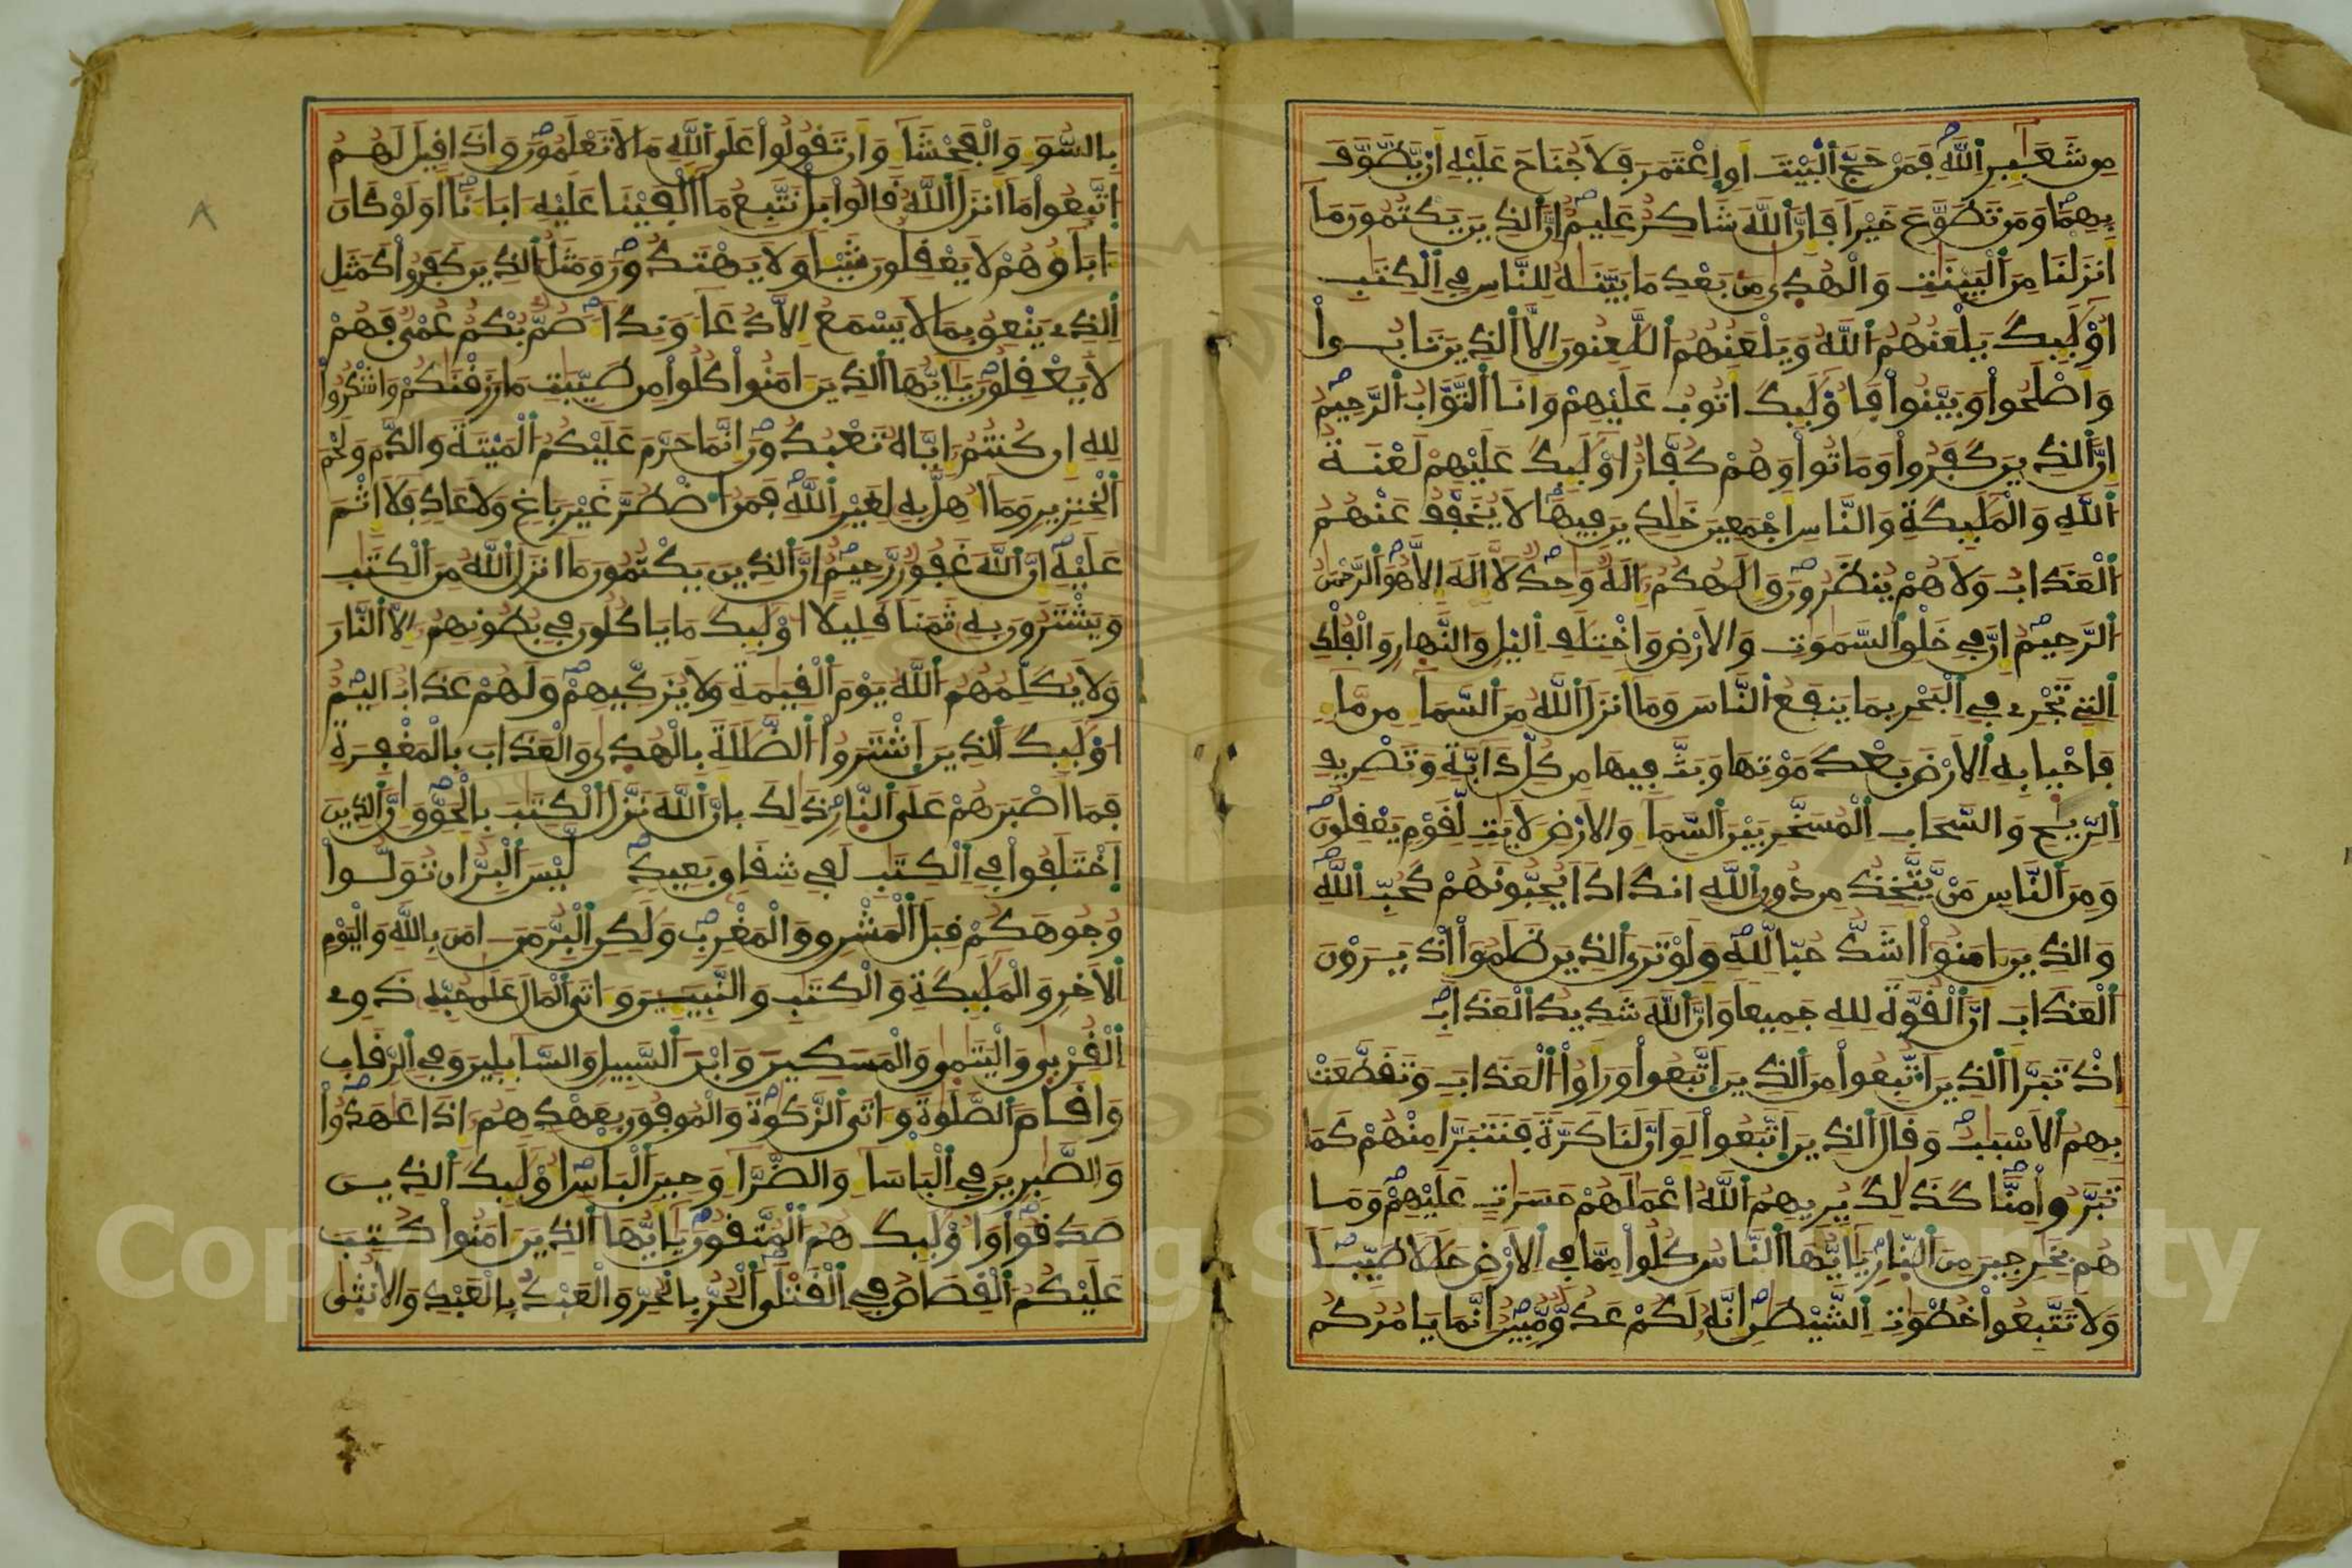 مِن شَعَٰٓئِرِ اِ۬للَّهِ فَمَنْ حَجَّ اَ۬لْبَيْتَ أَوِ اِ۪عْتَمَرَ فَلَا جُنَاحَ عَلَيْهِ أَنْ يَّطَّوَّفَ
بِهِمَا وَمَن تَطَوَّعَ خَيْراً فَإِنَّ اَ۬للَّهَ شَاكِرٌ عَلِيمٌ إِنَّ اَ۬لذِينَ يَكْتُمُونَ مَآ
أَنزَلْنَا مِنَ اَ۬لْبَيِّنَٰتِ وَالْهُد۪ىٰ مِنۢ بَعْدِ مَا بَيَّنَّٰهُ لِلنَّاسِ فِي اِ۬لْكِتَٰبِ
أُوْلَٰٓئِكَ يَلْعَنُهُمُ اُ۬للَّهُ وَيَلْعَنُهُمُ اُ۬للَّٰعِنُونَ إِلَّا اَ۬لذِينَ تَابُواْ
وَأَصْلَحُواْ وَبَيَّنُواْ فَأُوْلَٰٓئِكَ أَتُوبُ عَلَيْهِمْ وَأَنَا اَ۬لتَّوَّابُ اُ۬لرَّحِيمُ
إِنَّ اَ۬لذِينَ كَفَرُواْ وَمَاتُواْ وَهُمْ كُفَّارٌ اُوْلَٰٓئِكَ عَلَيْهِمْ لَعْنَةُ
اُ۬للَّهِ وَالْمَلَٰٓئِكَةِ وَالنَّاسِ أَجْمَعِينَ خَٰلِدِينَ فِيهَا لَا يُخَفَّفُ عَنْهُمُ
اُ۬لْعَذَابُ وَلَا هُمْ يُنظَرُونَ وَإِلَٰهُكُمُ إِلَٰهٌ وَٰحِدٌ لَّآ إِلَٰهَ إِلَّا هُوَ اَ۬لرَّحْمَٰنُ
اُ۬لرَّحِيمُ إِنَّ فِي خَلْقِ اِ۬لسَّمَٰوَٰتِ وَالْأَرْضِ وَاخْتِلَٰفِ اِ۬ليْلِ وَالنَّهَارِ وَالْفُلْكِ
اِ۬لتِي تَجْرِے فِي اِ۬لْبَحْرِ بِمَا يَنفَعُ اُ۬لنَّاسَ وَمَآ أَنزَلَ اَ۬للَّهُ مِنَ اَ۬لسَّمَآءِ مِن مَّآءٍ
فَأَحْيَا بِهِ اِ۬لْأَرْضَ بَعْدَ مَوْتِهَا وَبَثَّ فِيهَا مِن كُلِّ دَآبَّةٍ وَتَصْرِيفِ
اِ۬لرِّيَٰحِ وَالسَّحَابِ اِ۬لْمُسَخَّرِ بَيْنَ اَ۬لسَّمَآءِ وَالْأَرْضِ لَأٓيَٰتٍ لِّقَوْمٍ يَعْقِلُونَ
وَمِنَ اَ۬لنَّاسِ مَنْ يَّتَّخِذُ مِن دُونِ اِ۬للَّهِ أَندَاداً يُحِبُّونَهُمْ كَحُبِّ اِ۬للَّهِ
وَالذِينَ ءَامَنُوٓاْ أَشَدُّ حُبّاً لِّلَّهِ وَلَوْ تَرَى اَ۬لذِينَ ظَلَمُوٓاْ إِذْ يَرَوْنَ
اَ۬لْعَذَابَ أَنَّ اَ۬لْقُوَّةَ لِلهِ جَمِيعاً وَأَنَّ اَ۬للَّهَ شَدِيدُ اُ۬لْعَذَابِ
إِذْ تَبَرَّأَ اَ۬لذِينَ اَ۟تُّبِعُواْ مِنَ اَ۬لذِينَ اَ۪تَّبَعُواْ وَرَأَوُاْ اُ۬لْعَذَابَ وَتَقَطَّعَتْ
بِهِمُ اُ۬لْأَسْبَٰبُ وَقَالَ اَ۬لذِينَ اَ۪تَّبَعُواْ لَوَ اَنَّ لَنَا كَرَّةً فَنَتَبَرَّأَ مِنْهُمْ كَمَا
تَبَرَّءُواْ مِنَّا كَذَٰلِكَ يُرِيهِمُ اُ۬للَّهُ أَعْمَٰلَهُمْ حَسَرَٰتٍ عَلَيْهِمْ وَمَا
هُم بِخَٰرِجِينَ مِنَ اَ۬لنَّارِ يَٰٓأَيُّهَا اَ۬لنَّاسُ كُلُواْ مِمَّا فِي اِ۬لْأَرْضِ حَلَٰلاً طَيِّباً
وَلَا تَتَّبِعُواْ خُطْوَٰتِ اِ۬لشَّيْطَٰنِ إِنَّهُ لَكُمْ عَدُوٌّ مُّبِينٌ إِنَّمَا يَامُرُكُم
بِالسُّوٓءِ وَالْفَحْشَآءِ وَأَن تَقُولُواْ عَلَى اَ۬للَّهِ مَا لَا تَعْلَمُونَ وَإِذَا قِيلَ لَهُمُ
اُ۪تَّبِعُواْ مَآ أَنزَلَ اَ۬للَّهُ قَالُواْ بَلْ نَتَّبِعُ مَآ أَلْفَيْنَا عَلَيْهِ ءَابَآءَنَآ أَوَلَوْ كَانَ
ءَابَآؤُهُمْ لَا يَعْقِلُونَ شَيْـٔاً وَلَا يَهْتَدُونَ وَمَثَلُ اُ۬لذِينَ كَفَرُواْ كَمَثَلِ
اِ۬لذِے يَنْعِقُ بِمَا لَا يَسْمَعُ إِلَّا دُعَآءً وَنِدَآءً صُمٌّ بُكْمٌ عُمْيٌ فَهُمْ
لَا يَعْقِلُونَ يَٰٓأَيُّهَا اَ۬لذِينَ ءَامَنُواْ كُلُواْ مِن طَيِّبَٰتِ مَا رَزَقْنَٰكُمْ وَاشْكُرُواْ
لِلهِ إِن كُنتُمُ إِيَّاهُ تَعْبُدُونَ إِنَّمَا حَرَّمَ عَلَيْكُمُ اُ۬لْمَيْتَةَ وَالدَّمَ وَلَحْمَ
اَ۬لْخِنزِيرِ وَمَآ أُهِلَّ بِهِ لِغَيْرِ اِ۬للَّهِ فَمَنُ اُ۟ضْطُرَّ غَيْرَ بَاغٍ وَلَا عَادٍ فَلَآ إِثْمَ
عَلَيْهِ إِنَّ اَ۬للَّهَ غَفُورٌ رَّحِيمٌ إِنَّ اَ۬لذِينَ يَكْتُمُونَ مَآ أَنزَلَ اَ۬للَّهُ مِنَ اَ۬لْكِتَٰبِ
وَيَشْتَرُونَ بِهِ ثَمَناً قَلِيلاً اُوْلَٰٓئِكَ مَا يَاكُلُونَ فِي بُطُونِهِمُ إِلَّا اَ۬لنَّارَ
وَلَا يُكَلِّمُهُمُ اُ۬للَّهُ يَوْمَ اَ۬لْقِيَٰمَةِ وَلَا يُزَكِّيهِمْ وَلَهُمْ عَذَابٌ اَلِيمٌ
أُوْلَٰٓئِكَ اَ۬لذِينَ اَ۪شْتَرَوُاْ اُ۬لضَّلَٰلَةَ بِالْهُد۪ىٰ وَالْعَذَابَ بِالْمَغْفِرَةِ
فَمَآ أَصْبَرَهُمْ عَلَى اَ۬لنَّارِ ذَٰلِكَ بِأَنَّ اَ۬للَّهَ نَزَّلَ اَ۬لْكِتَٰبَ بِالْحَقِّ وَإِنَّ اَ۬لذِينَ
اَ۪خْتَلَفُواْ فِي اِ۬لْكِتَٰبِ لَفِي شِقَاقٍ بَعِيدٍ لَّيْسَ اَ۬لْبِرُّ أَن تُوَلُّواْ
وُجُوهَكُمْ قِبَلَ اَ۬لْمَشْرِقِ وَالْمَغْرِبِ وَلَٰكِنِ اِ۬لْبِرُّ مَنَ ءَامَنَ بِاللَّهِ وَالْيَوْمِ
اِ۬لْأٓخِرِ وَالْمَلَٰٓئِكَةِ وَالْكِتَٰبِ وَالنَّبِيٓـِٕينَ وَءَاتَى اَ۬لْمَالَ عَلَىٰ حُبِّهِ ذَوِے
اِ۬لْقُرْب۪ىٰ وَالْيَتَٰم۪ىٰ وَالْمَسَٰكِينَ وَابْنَ اَ۬لسَّبِيلِ وَالسَّآئِلِينَ وَفِي اِ۬لرِّقَابِ
وَأَقَامَ اَ۬لصَّلَوٰةَ وَءَاتَى اَ۬لزَّكَوٰةَ وَالْمُوفُونَ بِعَهْدِهِمُ إِذَا عَٰهَدُواْ
وَالصَّٰبِرِينَ فِي اِ۬لْبَأْسَآءِ وَالضَّرَّآءِ وَحِينَ اَ۬لْبَأْسِ أُوْلَٰٓئِكَ اَ۬لذِينَ
صَدَقُواْ وَأُوْلَٰٓئِكَ هُمُ اُ۬لْمُتَّقُونَ يَٰٓأَيُّهَا اَ۬لذِينَ ءَامَنُواْ كُتِبَ
عَلَيْكُمُ اُ۬لْقِصَاصُ فِي اِ۬لْقَتْلَى اَ۬لْحُرُّ بِالْحُرِّ وَالْعَبْدُ بِالْعَبْدِ وَالْأُنث۪ىٰ
٨
Copyright © King Saud University